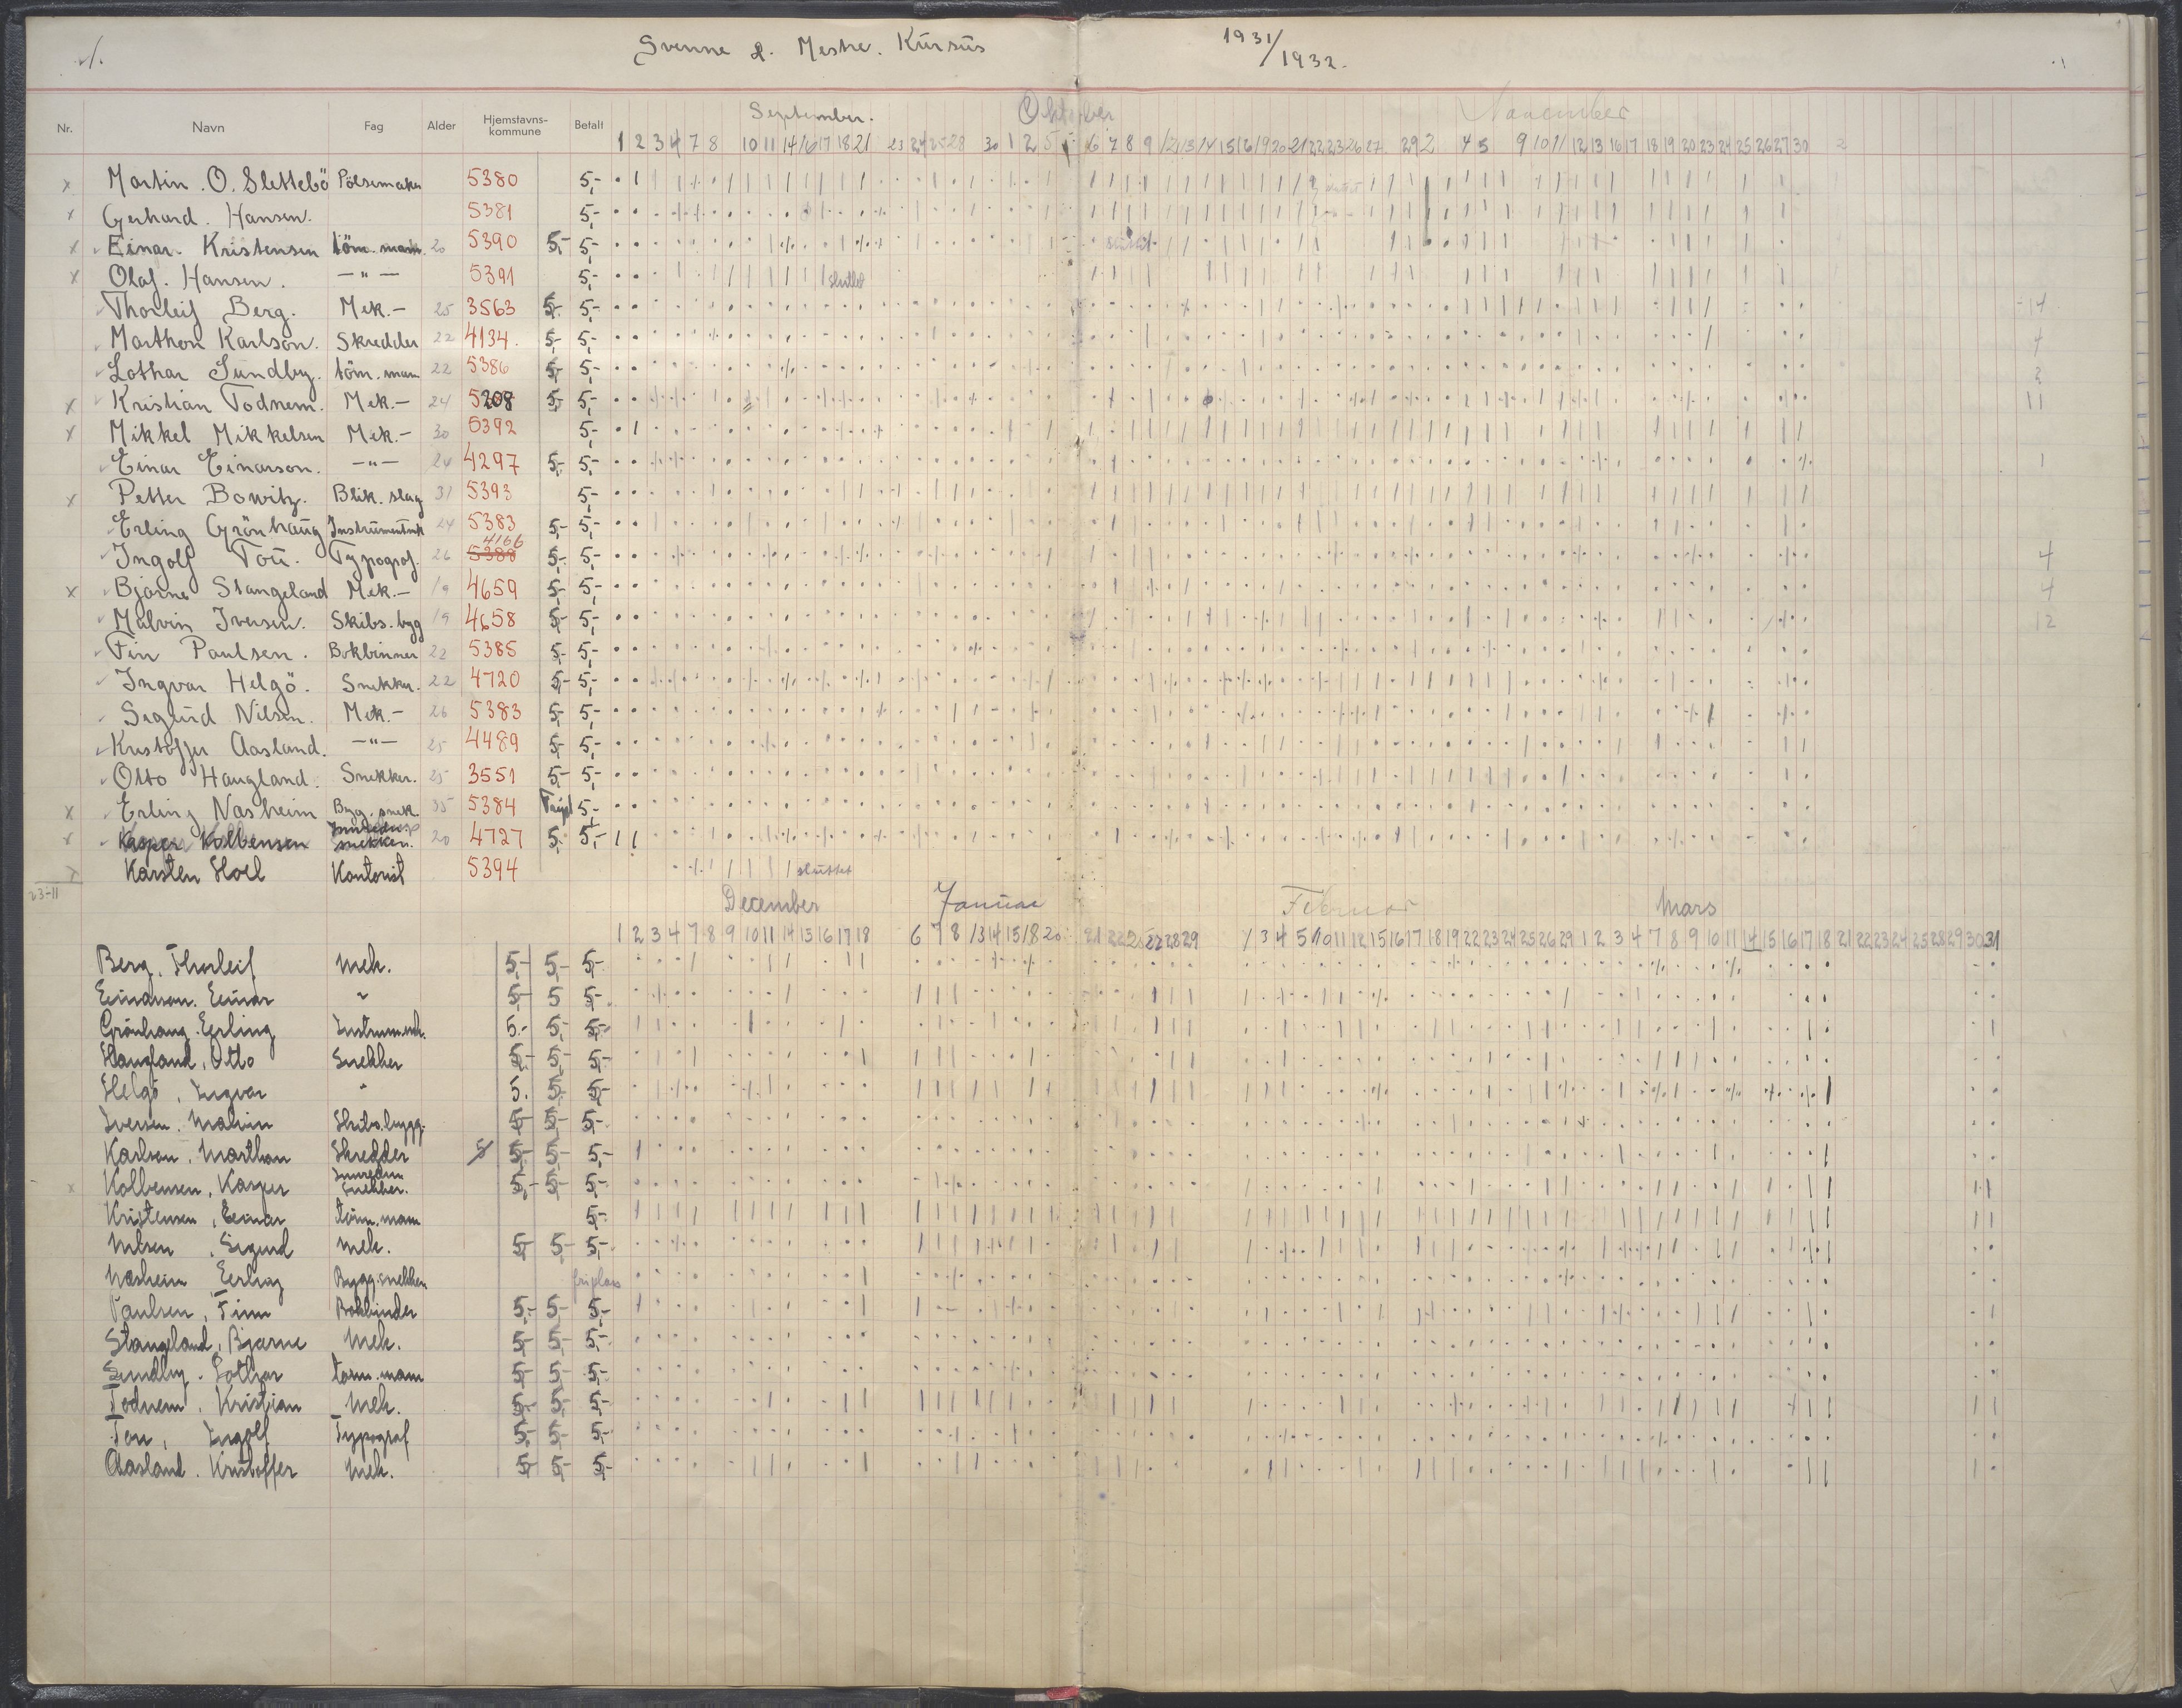 Svenne & Mestre. Kursus 1931/1932.
Nr. Navn Fag Alder Hjemstavns-kommune Betalt September. Oktober November
1 2 3 4 7 8 10 11 14 16 17 18 21 23 24 25 28 30 1 2 5 6 7 8 9 12 13 14 15 16 19 20 21 22 23 26 27 29 2 4 5 9 10 11 12 13 16 17 18 19 20 23 24 25 26 27 30
x Martin. O. Slettebö Pölsemaker 5380 5,-
x Gerhard. Hansen. 5381 5,-
x Einar. Kristensen töm. mann. 20 5390 5,- 5,-
x Olaf. Hansen. -"- 5391 5,- sluttet
Thorleif Berg. Mek.- 25 3563 5,- 5,- 14
Marthon Karlson. Skredder 22 4134. 5,- 5,- 4
Lothar Sundby. töm. man 22 5386 5,- 5,- 2
x Kristian Todnem. Mek.- 24 5208 5,- 5,- 11
x Mikkel Mikkelsen Mek.- 30 5392 5,-
Einar Einarson. -"- 24 4297 5,- 5,- 1
x Petter Bowitz. Blik. slag 31 5393 5,-
Erling Grönhaug Instrumentmk 24 5383 5,- 5,-
Ingolf Tou. Typograf. 26 5388 4166 5,- 5,- 4
x Bjarne Stangeland Mek.- 19 4659 5,- 5,- 4
Malvin Iversen. Skibs. byg 19 4658 5,- 5,- 12
Fin Paulsen. Bokbinner 22 5385 5,- 5,-
Ingvar Helgö. Snekker. 22 4720 5,- 5,-
Sigurd Nilsen. Mek.- 26 5383 5,- 5,-
Kristoffer Aasland. -"- 25 4489 5,- 5,-
Otto Haugland. Snekker. 25 3551 5,- 5,-
x Erling Nasheim Byg. snek. 35 5384 Fripl 5,-
x Kasper Kolbensen snekker. 20 4727 5,- 5,-
x Karsten Hoel Kontorist 5394 sluttet
23-11
December Januar Februar Mars
1 2 3 4 7 8 9 10 11 14 15 16 17 18 6 7 8 13 14 15 18 20 21 22 28 29 1 3 4 5 10 11 12 15 16 17 18 19 22 23 24 25 26 29 1 2 3 4 7 8 9 10 11 14 15 16 17 18 21 22 23 24 25 28 29 30 31
Berg, Thorleif Mek. 5,- 5,- 5,-
Einarson. Einar " 5,- 5 5,-
Grönhaug. Erling Instrum.mk. 5.- 5,- 5,-
Haugland, Otto Snekker 5,- 5,- 5,-
Helgö, Ingvar " 5. 5,- 5,-
Iversen. Malvin Skibs.bygg. 5,- 5,- 5,-
Karlsen, Marthon Skredder 5 5,- 5,- 5,-
x Kolbensen, Kasper snekker. 5,- 5,- 5,-
Kristensen, Einar töm.mann 5,-
Nilsen, Sigurd Mek. 5,- 5,- 5,-
Nasheim Erling Bygg.snekker friplass
Paulsen, Finn Bokbinder 5,- 5,- 5,-
Stangeland, Bjarne Mek. 5,- 5,- 5,-
Sundby. Lothar töm.mann 5,- 5,- 5,-
Todnem, Kristian Mek. 5,- 5,- 5,-
Tou, Ingolf Typograf 5,- 5,- 5,-
Aasland. Kristoffer Mek. 5,- 5,- 5,-